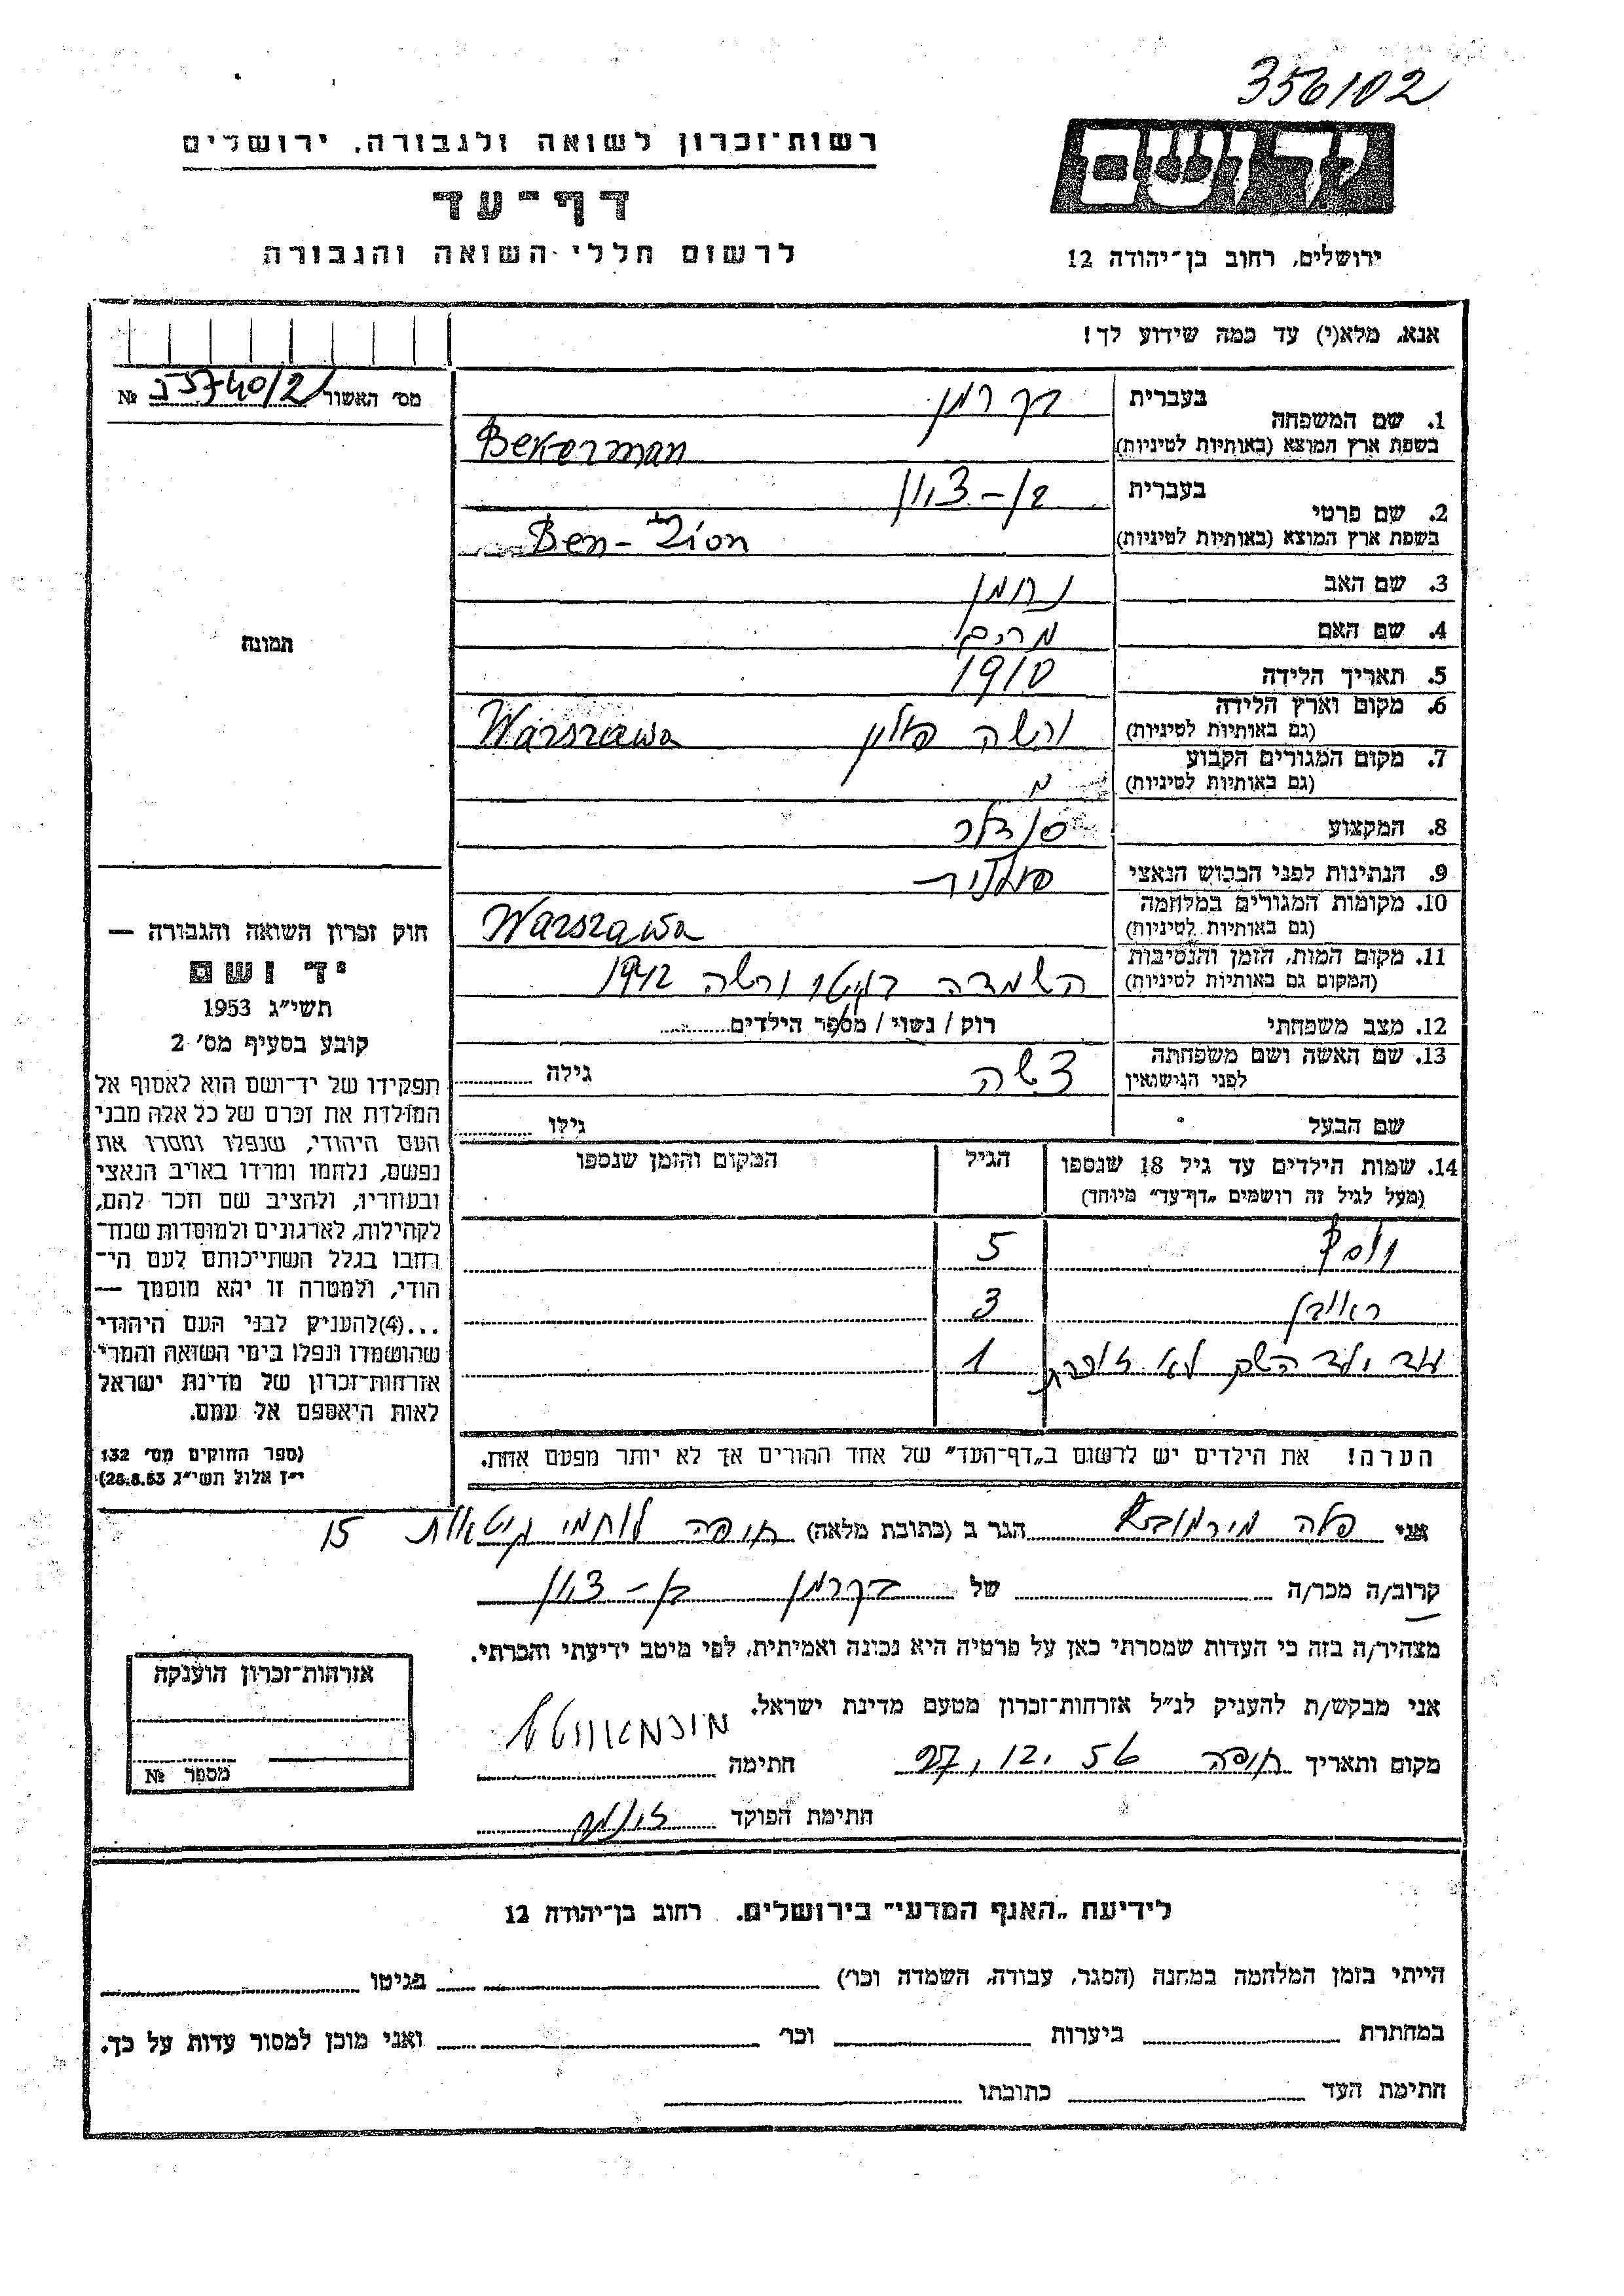 356102
רשות־זכרון לשואה ולגבורה, ירושלים
דף־עד
לרשום חללי השואה והגבורה
יד ושם
ירושלים, רחוב בן־יהודה 12
אנא, מלא(י) עד כמה שידוע לך!
מס׳ האשור №
1. שם המשפחה
בעברית בקרמן
בשפת ארץ המוצא (באותיות לטיניות) Bekerman
2. שם פרטי
בעברית בן-ציון
בשפת ארץ המוצא (באותיות לטיניות) Ben-Zion
3. שם האב נחמן
4. שם האם מרים
5. תאריך הלידה 1910
6. מקום וארץ הלידה (גם באותיות לטיניות) ורשה פולין Warszawa
7. מקום המגורים הקבוע (גם באותיות לטיניות)
8. המקצוע סנדלר
9. הנתינות לפני הכבוש הנאצי פולנית
10. מקומות המגורים במלחמה (גם באותיות לטיניות) Warszawa
11. מקום המות, הזמן והנסיבות (המקום גם באותיות לטיניות) השמדה בגיטו ורשה 1942
12. מצב משפחתי רוק / נשוי / מספר הילדים
13. שם האשה ושם משפחתה לפני הנישואין גילה
שם הבעל גילו
14. שמות הילדים עד גיל 18 שנספו (מעל לגיל זה רושמים „דף־עד” מיוחד) הגיל המקום והזמן שנספו
יוסף 5
ראובן 3
עוד ילד השם לא זוכרת 1
הערה! את הילדים יש לרשום ב„דף־העד” של אחד ההורים אך לא יותר מפעם אחת.
תמונה
חוק זכרון השואה והגבורה —
יד ושם
תשי״ג 1953
קובע בסעיף מס׳ 2
תפקידו של יד־ושם הוא לאסוף אל
המולדת את זכרם של כל אלה מבני
העם היהודי, שנפלו ומסרו את
נפשם, נלחמו ומרדו באויב הנאצי
ובעוזריו, ולהציב שם וזכר להם,
לקהילות, לארגונים ולמוסדות שנח־
רבו בגלל השתייכותם לעם הי־
הודי, ולמטרה זו יהא מוסמך —
...(4)להעניק לבני העם היהודי
שהושמדו ונפלו בימי השואה והמרי
אזרחות־זכרון של מדינת ישראל
לאות היאספם אל עמם.
(ספר החוקים מס׳ 132
י״ז אלול תשי״ג 28.8.53)
אני פלה הגר ב (כתובת מלאה) חיפה לוחמי גיטאות 15
קרוב/ה מכר/ה של בקרמן בן-ציון
מצהיר/ה בזה כי העדות שמסרתי כאן על פרטיה היא נכונה ואמיתית, לפי מיטב ידיעתי והכרתי.
אני מבקש/ת להעניק לנ״ל אזרחות־זכרון מטעם מדינת ישראל.
מקום ותאריך חיפה 27.12.56 חתימה
חתימת הפוקד
אזרחות־זכרון הוענקה
מספר №
לידיעת „האגף המדעי” בירושלים. רחוב בן־יהודה 12
הייתי בזמן המלחמה במחנה (הסגר, עבודה, השמדה וכר׳) בגיטו
במחתרת ביערות וכר׳ ואני מוכן למסור עדות על כך.
חתימת העד כתובתו